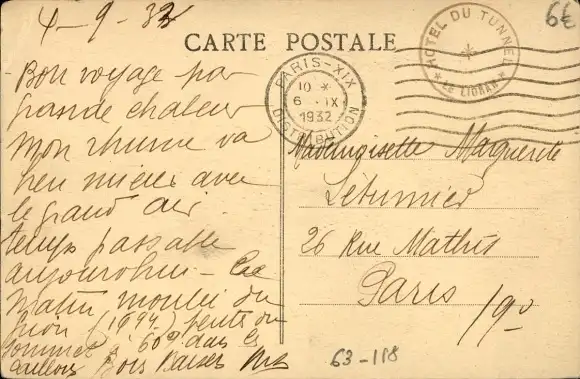 4-9-32
CARTE POSTALE
6€
HOTEL DU TUNNEL
LE LIORAN
PARIS-XIX
10 *
6 IX
1932
DISTRIBUTION
Bon voyage par
grande chaleur
mon rhume va
bien mieux avec
le grand air
temps passable
aujourd'hui - Ce
matin monté du
(1944) pente du
sommet à 60° dans les
cailloux Bons Baisers
Mademoiselle Marguerite
26 Rue Mathis
Paris 19e
63-118